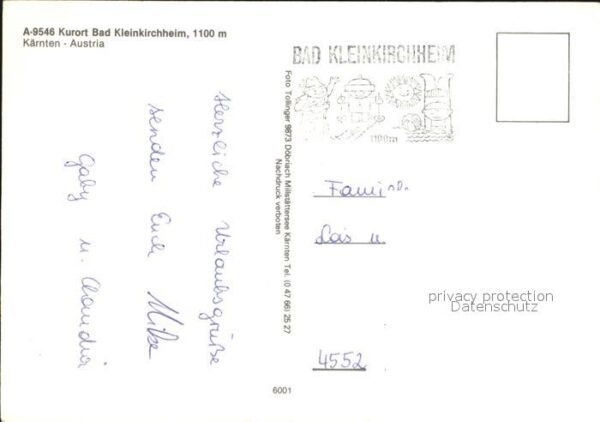 A-9546 Kurort Bad Kleinkirchheim, 1100 m
Kärnten - Austria
BAD KLEINKIRCHHEIM
1100m
Herzliche Urlaubsgrüße
senden Euch Mike
Gaby u. Claudia
Foto Tollinger 9873 Döbriach Millstättersee Kärnten Tel. (0 47 66) 25 27
Nachdruck verboten
u.
privacy protection
Datenschutz
4552
6001